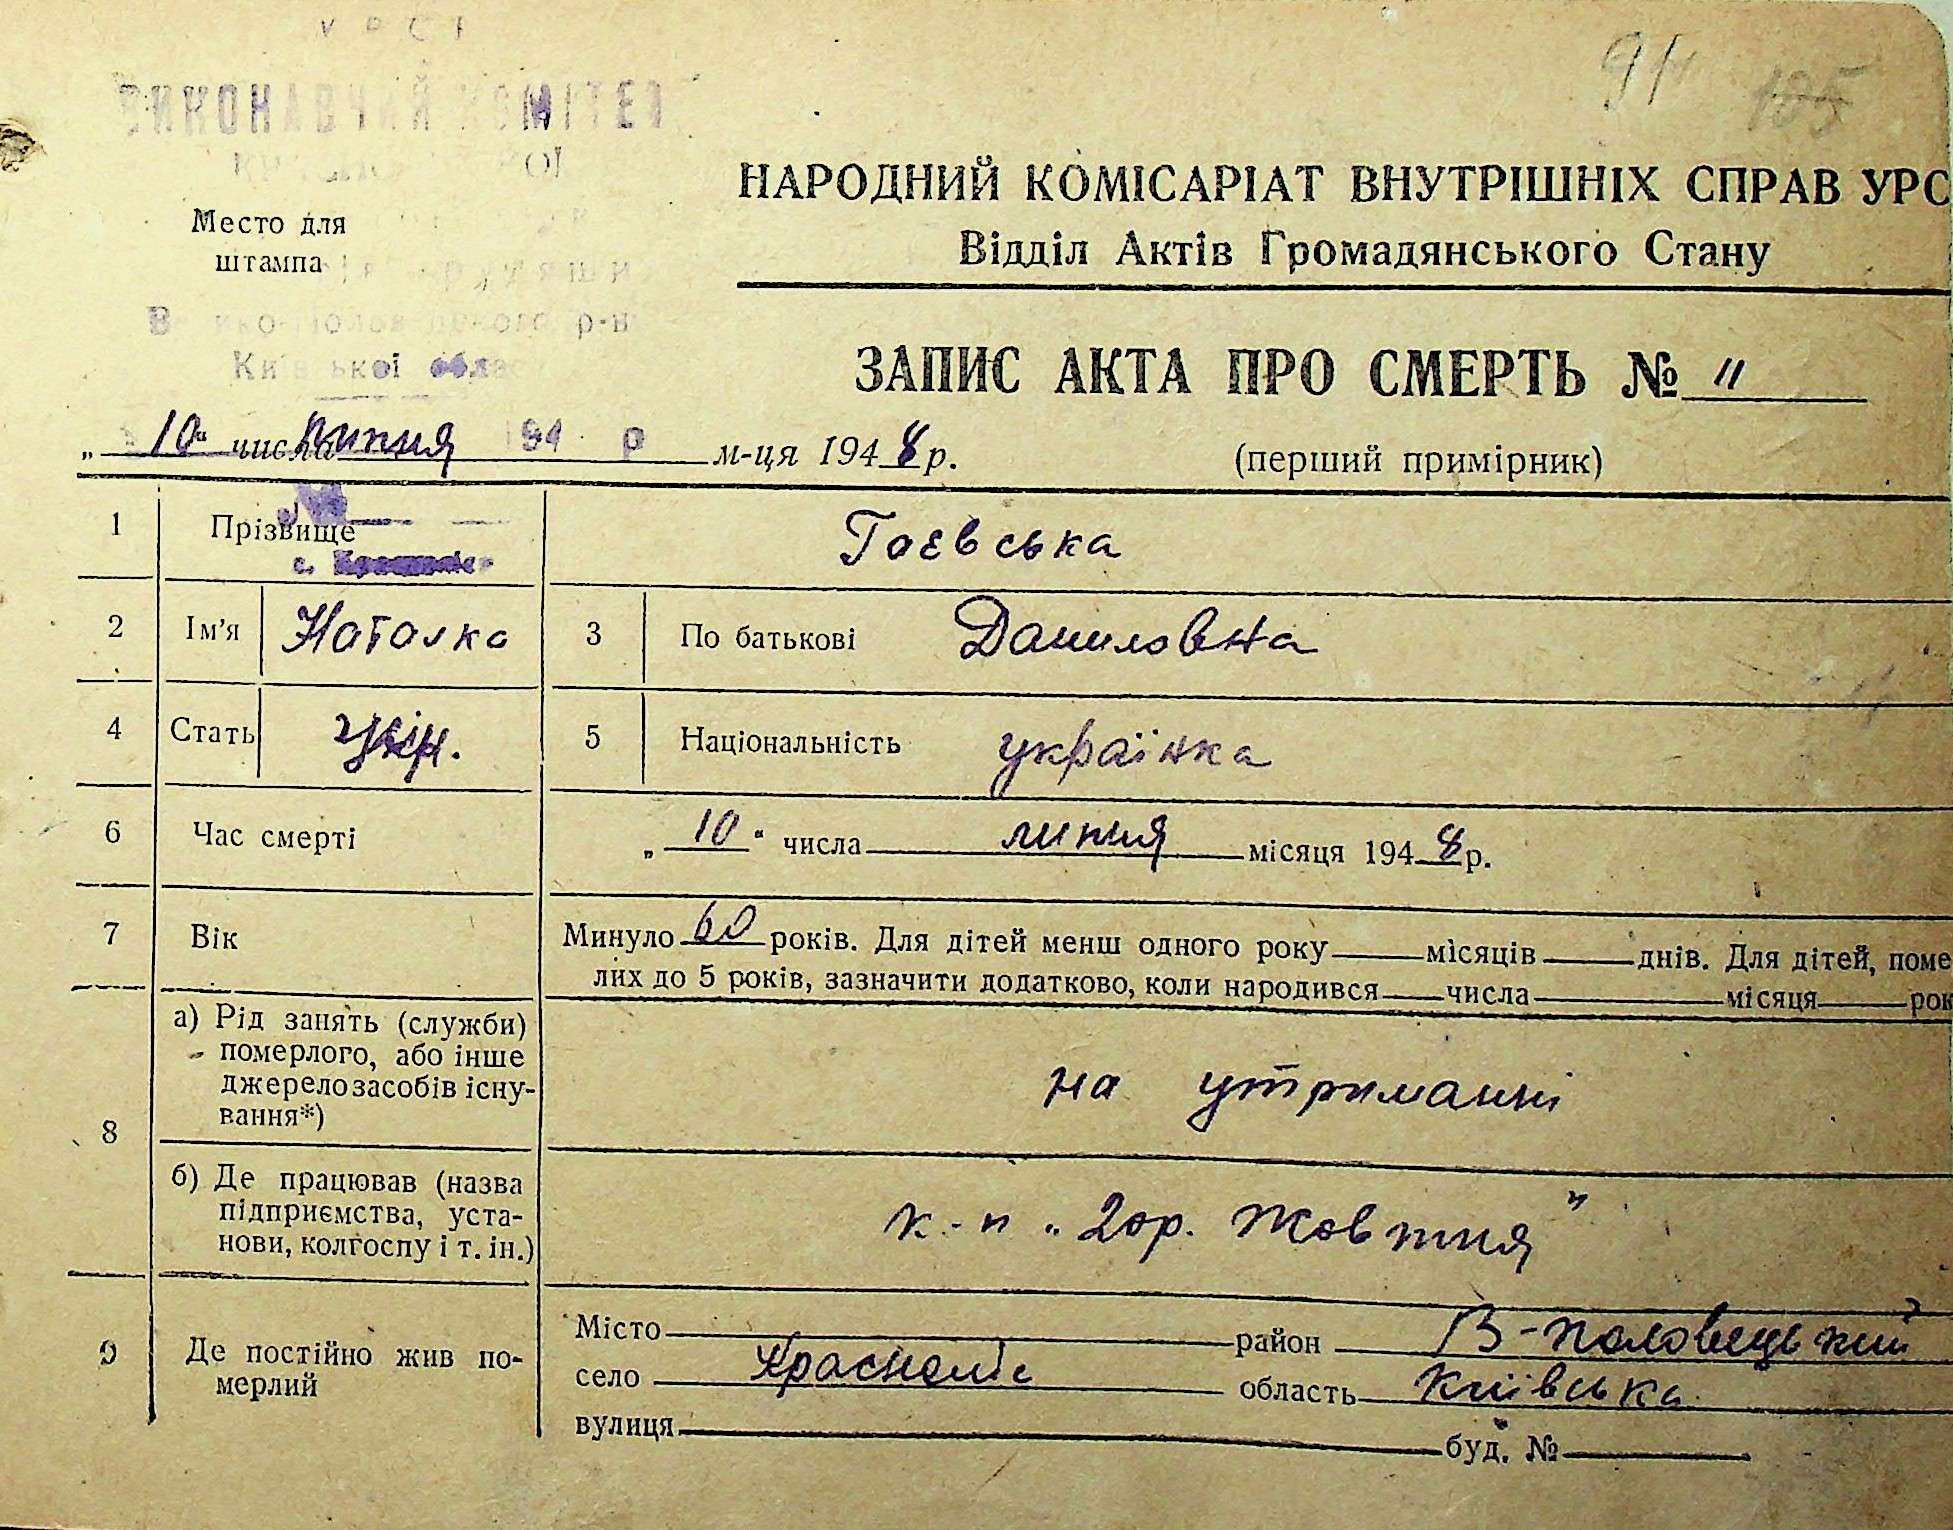 УРСР
ВИКОНАВЧИЙ КОМІТЕТ
Место для
штампа
Київської облас
91 105
НАРОДНИЙ КОМІСАРІАТ ВНУТРІШНІХ СПРАВ УРС
Відділ Актів Громадянського Стану
ЗАПИС АКТА ПРО СМЕРТЬ № 11
„ 10 " числа липня м-ця 1948 р.
(перший примірник)
1 Прізвище Гаєвська
2 Ім'я Наталка 3 По батькові Даниловна
4 Стать жін. 5 Національність українка
6 Час смерті „ 10 " числа липня місяця 1948 р.
7 Вік Минуло 60 років. Для дітей менш одного року місяців днів. Для дітей, поме
лих до 5 років, зазначити додатково, коли народився числа місяця рок
8 а) Рід занять (служби)
померлого, або інше
джерело засобів існу-
вання*)
на утриманні
б) Де працював (назва
підприємства, уста-
нови, колгоспу і т. ін.)
к-п „ 2 ор. Жовтня "
9 Де постійно жив по-
мерлий
Місто район В-Половецький
село Красноліс область Київська
вулиця буд. №